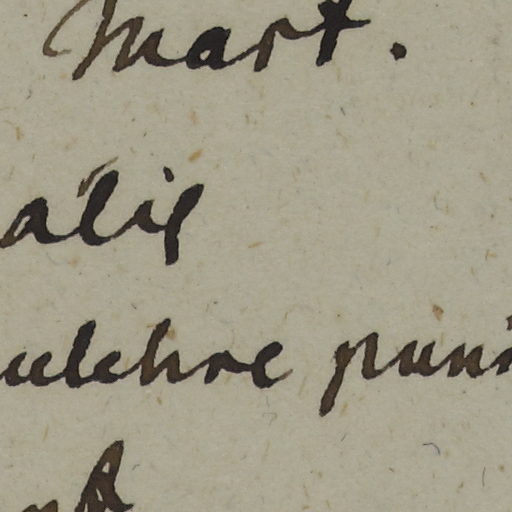 Mart.
alis
ulchre puni